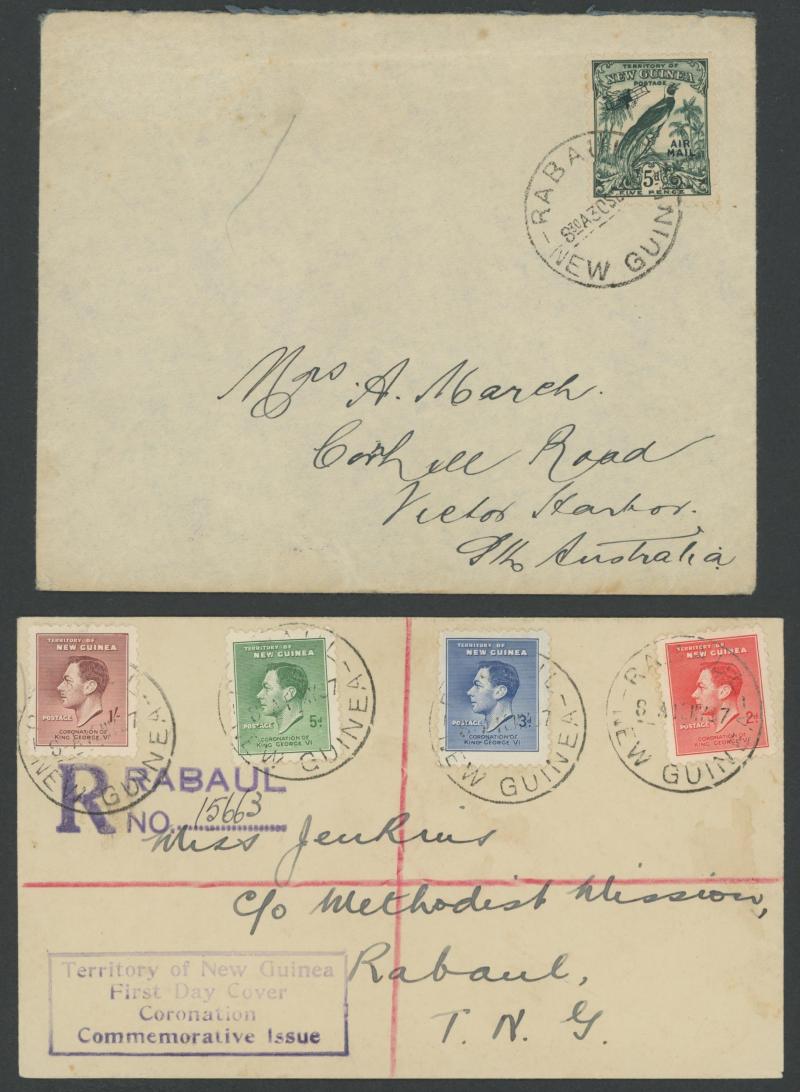 TERRITORY OF
NEW GUINEA
POSTAGE
AIR
MAIL
5d
FIVE PENCE
RABAUL
8³⁰A 30 SE
NEW GUINEA
Mrs A. March.
Road
Victor Harbor.
Sth Australia
TERRITORY OF
NEW GUINEA
1/-
POSTAGE
CORONATION OF
KING GEORGE VI
TERRITORY OF
NEW GUINEA
5d
POSTAGE
CORONATION OF
KING GEORGE VI
TERRITORY OF
NEW GUINEA
3d
POSTAGE
CORONATION OF
KING GEORGE VI
TERRITORY OF
NEW GUINEA
2d
POSTAGE
CORONATION OF
KING GEORGE VI
NEW GUINEA
NEW GUINEA
NEW GUINEA
NEW GUINEA
R RABAUL
NO. 15663
Miss Jenkins
c/o Methodist Mission,
Rabaul,
T. N. G.
Territory of New Guinea
First Day Cover
Coronation
Commemorative Issue